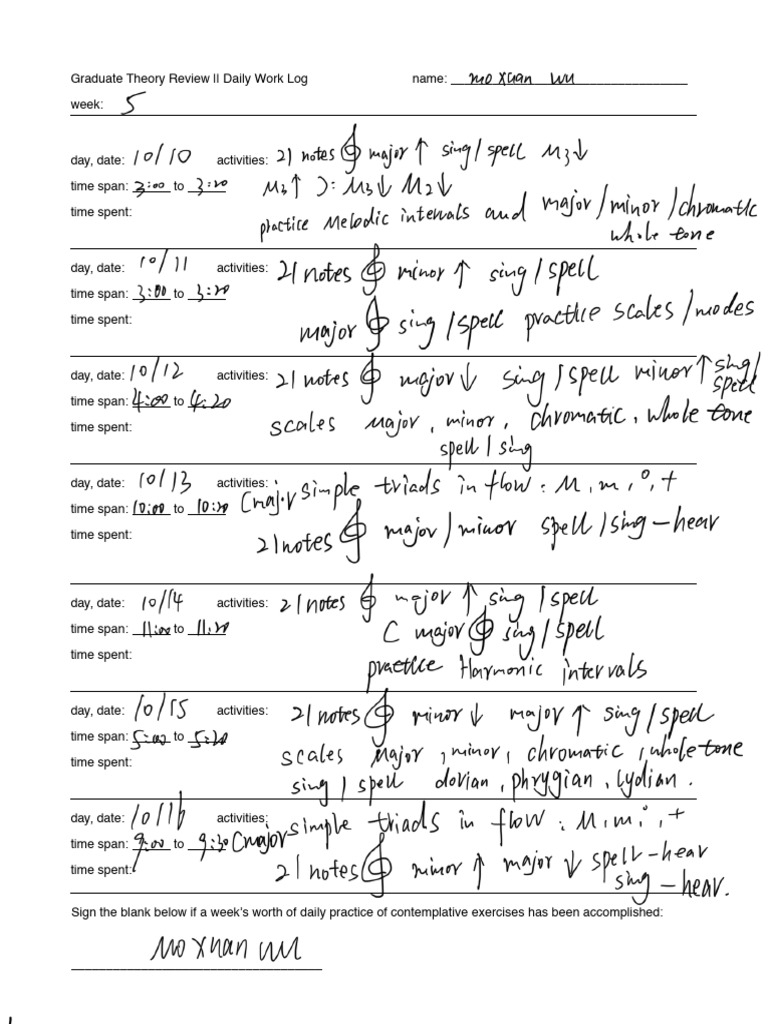 Graduate Theory Review II Daily Work Log name: Mo Xuan Wu
week: 5
day, date: 10/10 activities: 21 notes 𝄞 major ↑ sing/spell M3↓
time span: 3:00 to 3:20 M3↑ 𝄢 M3↓ M2↓
time spent: practice Melodic intervals and major/minor/chromatic
whole tone
day, date: 10/11 activities: 21 notes 𝄞 minor ↑ sing/spell
time span: 3:00 to 3:20
time spent: major 𝄞 sing/spell practice scales/modes
day, date: 10/12 activities: 21 notes 𝄞 major ↓ sing/spell minor ↑ sing/spell
time span: 4:00 to 4:20
time spent: scales Major, minor, chromatic, whole tone
spell/sing
day, date: 10/13 activities: C major simple triads in flow: M, m, °, +
time span: 10:00 to 10:20
time spent: 21 notes 𝄞 major/minor spell/sing-hear
day, date: 10/14 activities: 21 notes 𝄞 major ↑ sing/spell
time span: 11:00 to 11:20 C major 𝄞 sing/spell
time spent: practice Harmonic intervals
day, date: 10/15 activities: 21 notes 𝄞 minor ↓ major ↑ sing/spell
time span: 5:00 to 5:20 scales Major, minor, chromatic, whole tone
time spent: sing/spell dorian, phrygian, Lydian.
day, date: 10/16 activities: C major simple triads in flow: M, m, °, +
time span: 9:00 to 9:30
time spent: 21 notes 𝄞 minor ↑ major ↓ spell-hear
sing-hear.
Sign the blank below if a week's worth of daily practice of contemplative exercises has been accomplished:
Mo Xuan Wu